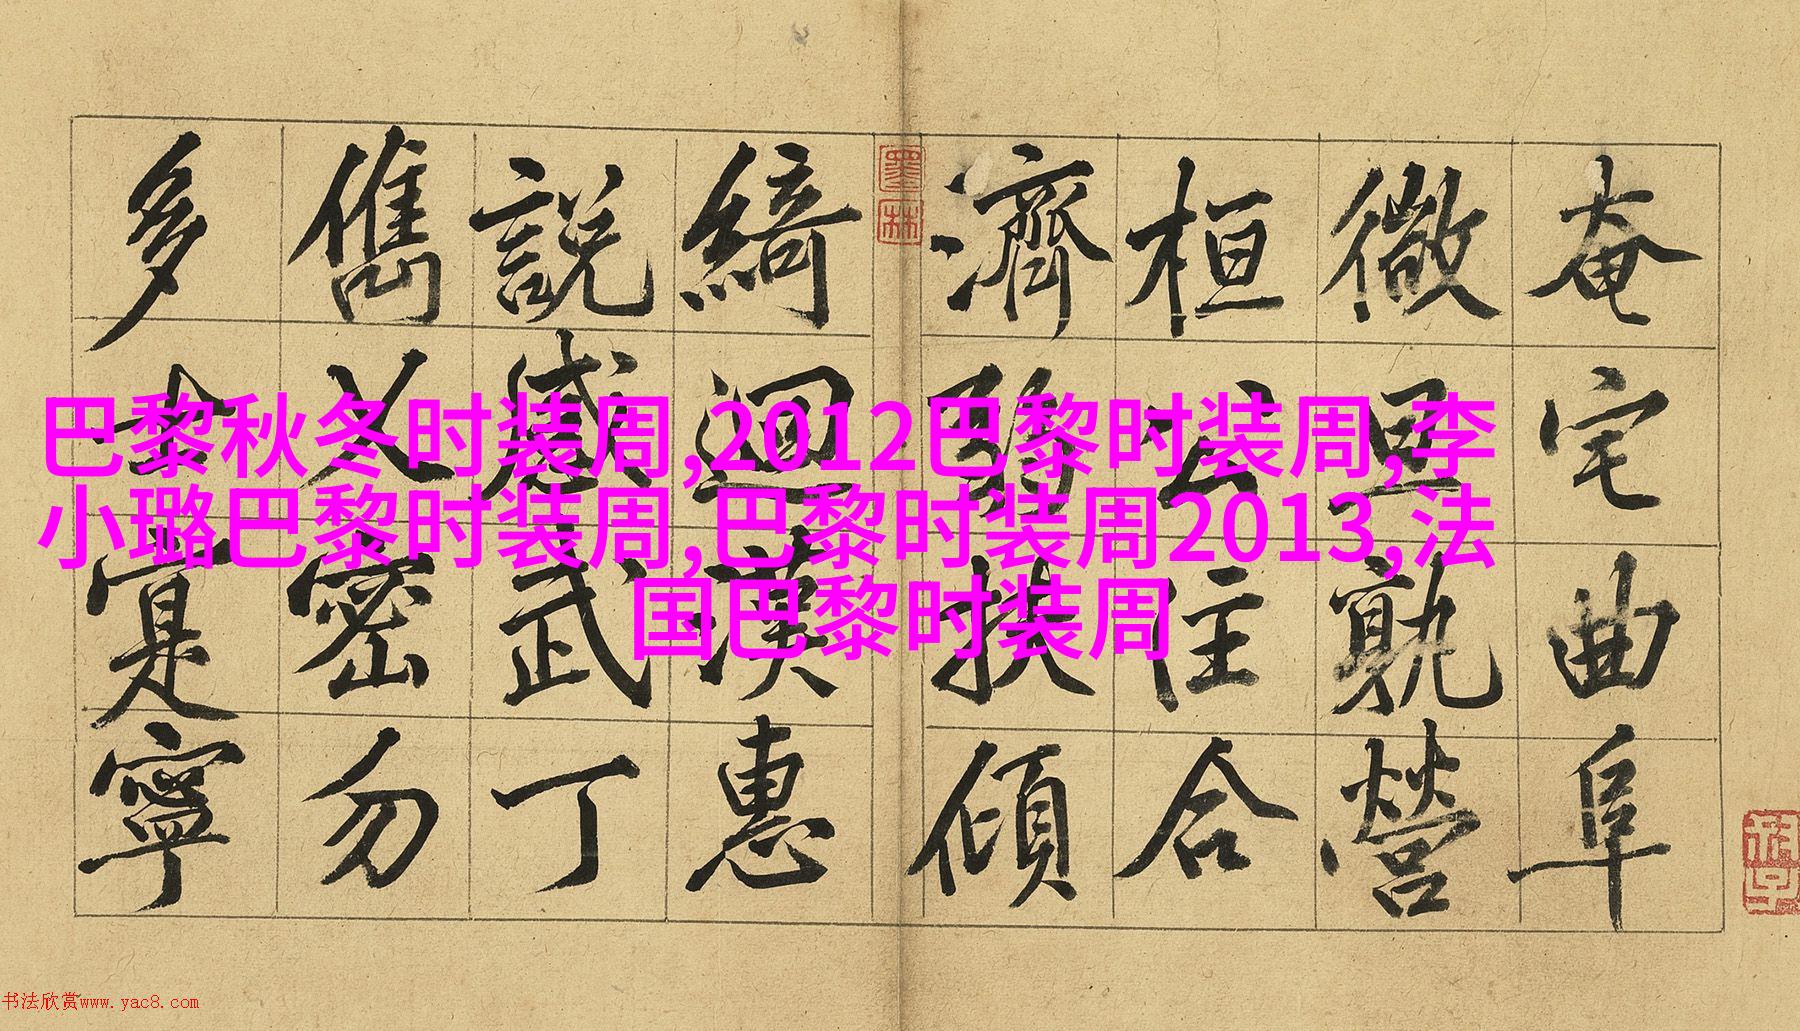 奄宅曲阜
微旦孰營
桓公合
濟弱扶傾
墨林
綺迴漢惠
說感武丁
儁乂密勿
多士寔寧
巴黎秋冬时装周,2012巴黎时装周,李
小璐巴黎时装周,巴黎时装周2013,法
国巴黎时装周
书法欣赏www.yac8.com